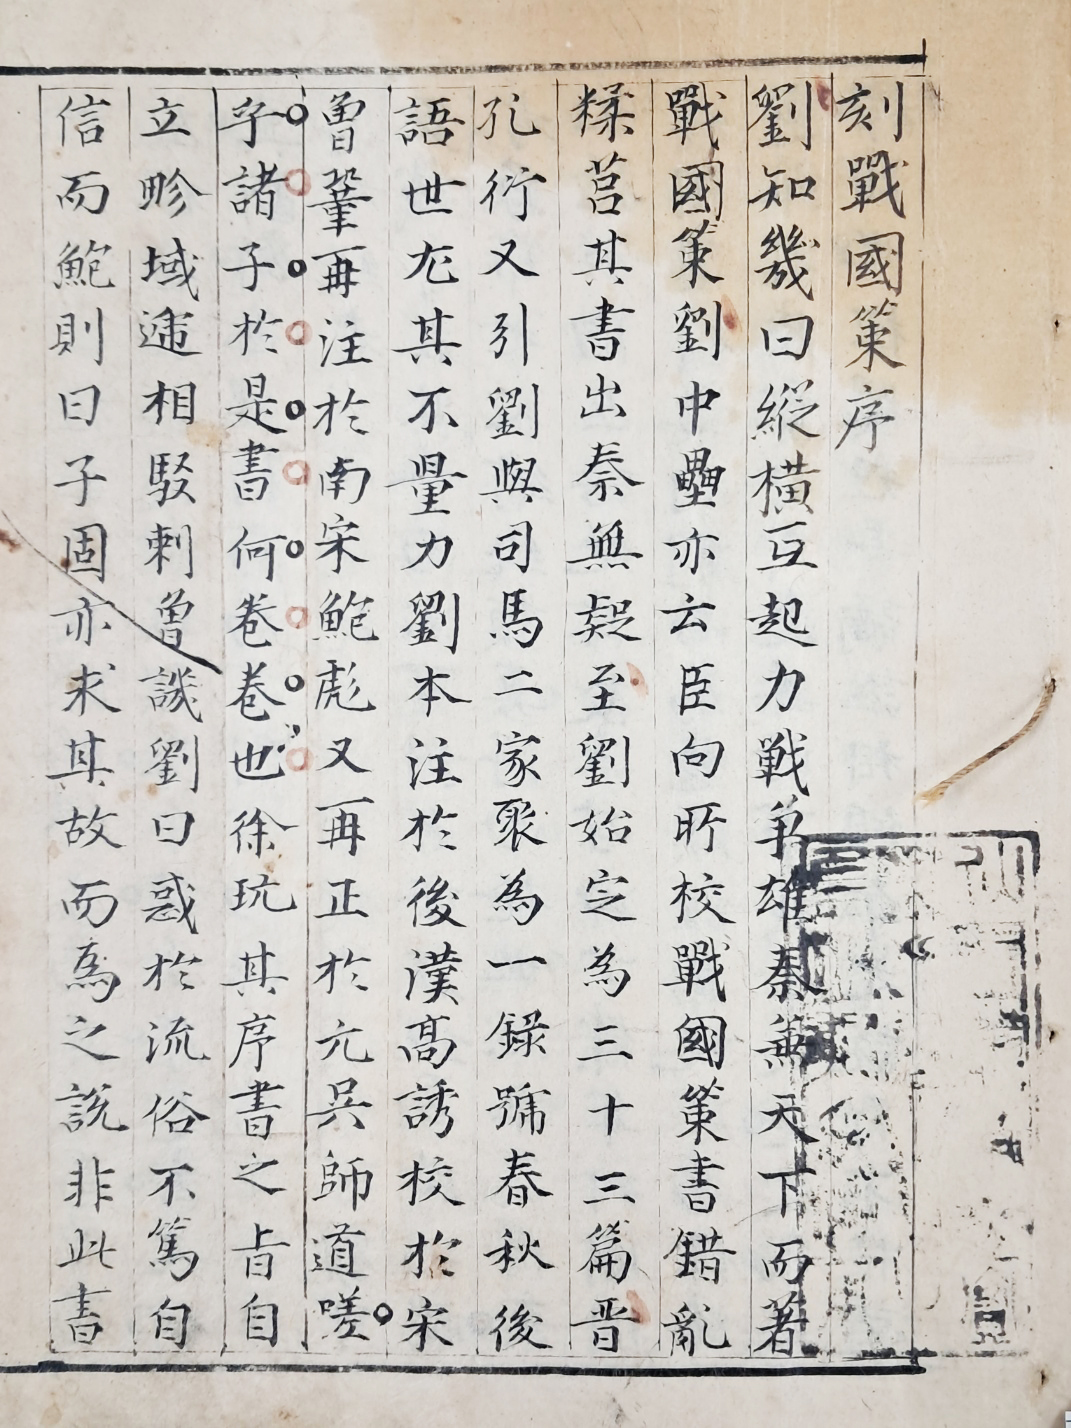 刻戰國策序
劉知幾曰縱橫互起力戰爭雄秦兼天下而著
戰國策劉中壘亦云臣向所校戰國策書錯亂
糅莒其書出秦無疑至劉始定為三十三篇晋
孔衍又引劉與司馬二家聚為一錄號春秋後
語世尤其不量力劉本注於後漢高誘校於宋
曾鞏再注於南宋鮑彪又再正於元吳師道嗟
乎諸子於是書何惓惓也徐玩其序書之旨自
立畛域遞相駁刺曾譏劉曰惑於流俗不篤自
信而鮑則曰子固亦求其故而為之說非此書